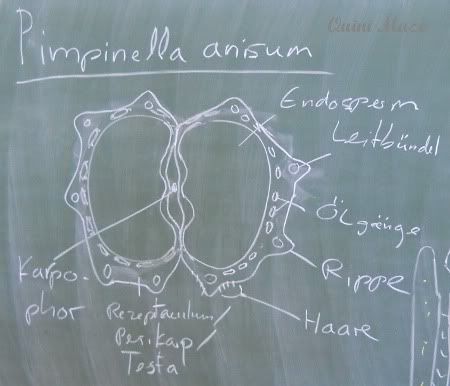 Quini Mace
Pimpinella anisum
Endosperm
Leitbündel
Ölgänge
Rippe
Haare
Karpo-
phor
Rezeptakulum
Perikarp
Testa